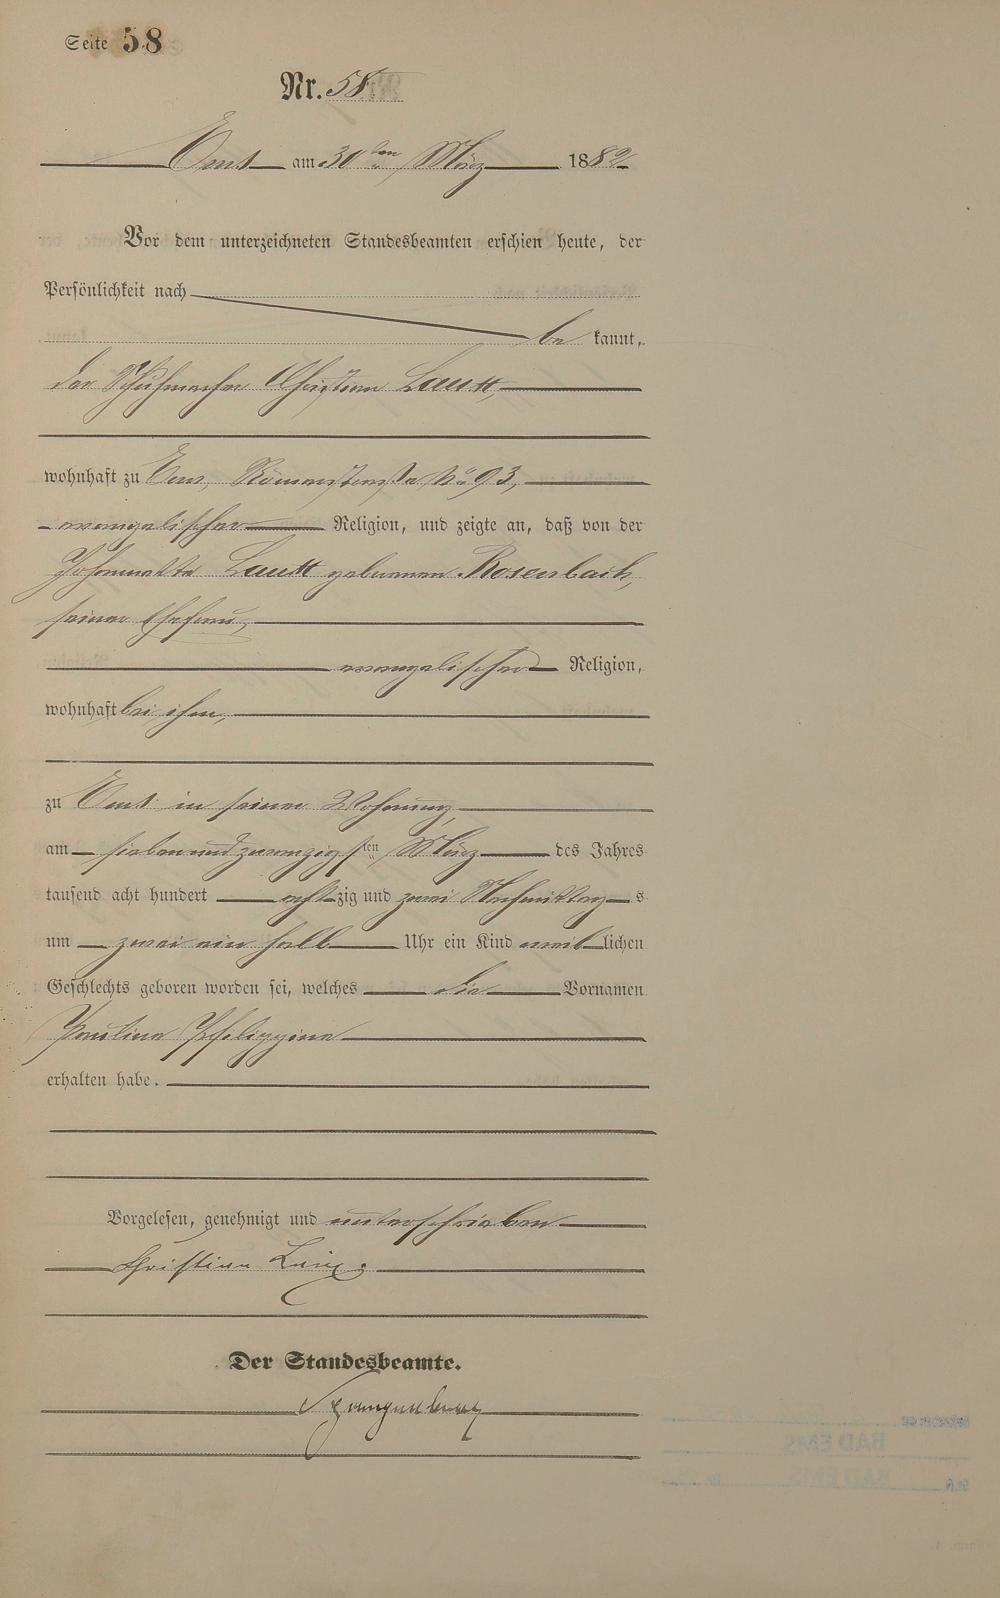 Seite 58
Nr. 58
Ems am 30ten März 1882
Vor dem unterzeichneten Standesbeamten erschien heute, der
Persönlichkeit nach
be kannt,
der Schuhmacher Christian
wohnhaft zu Ems, Römerstraße No 93,
evangelischer Religion, und zeigte an, daß von der
geborenen Rosenbach,
seiner Ehefrau,
evangelischer Religion,
wohnhaft bei ihm,
zu Ems in seiner Wohnung,
am siebenundzwanzigsten März des Jahres
tausend acht hundert achtzig und zwei Nachmittags
um zwei ein halb Uhr ein Kind weiblichen
Geschlechts geboren worden sei, welches die Vornamen
Pauline Philippine
erhalten habe.
Vorgelesen, genehmigt und unterschrieben
Christian
Der Standesbeamte.
BAD EMS
BAD EMS